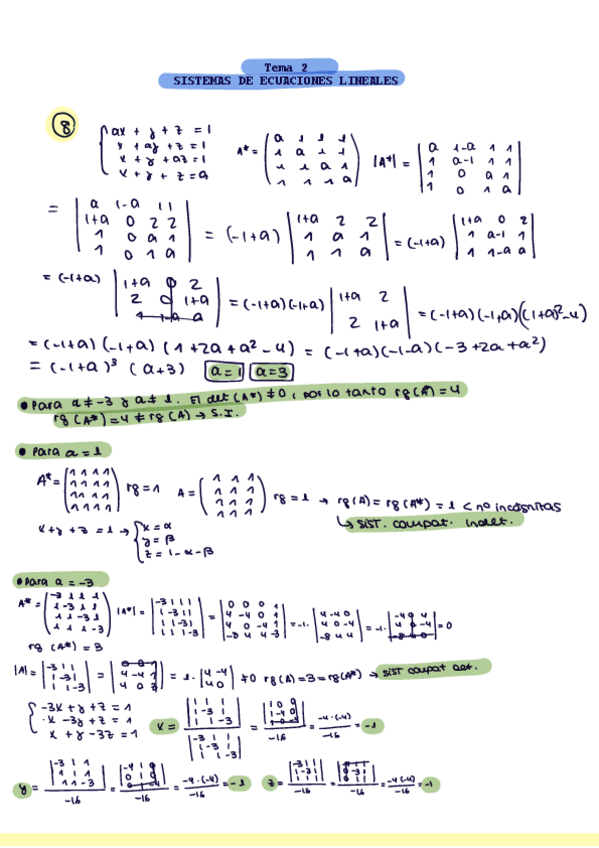 Tema 2
SISTEMAS DE ECUACIONES LINEALES
8
{ ax + y + z = 1
x + ay + z = 1
x + y + az = 1
x + y + z = a
A* = ( a 1 1 1
1 a 1 1
1 1 a 1
1 1 1 a )
|A*| = | a 1-a 1 1
1 a-1 1 1
1 0 a 1
1 0 1 a |
= | a 1-a 1 1
1+a 0 2 2
1 0 a 1
1 0 1 a |
= (-1+a) | 1+a 2 2
1 a 1
1 1 a |
= (-1+a) | 1+a 0 2
1 a-1 1
1 1-a a |
= (-1+a) | 1+a 0 2
2 0 1+a
1 1-a a |
= (-1+a)(-1+a) | 1+a 2
2 1+a |
= (-1+a)(-1+a)((1+a)²-4)
= (-1+a)(-1+a)(1+2a+a²-4) = (-1+a)(-1-a)(-3+2a+a²)
= (-1+a)³ (a+3) a=1 a=3
• Para a≠-3 y a≠1. El det(A*)≠0, por lo tanto rg(A*)=4
rg(A*)=4 ≠ rg(A) → S.I.
• Para a=1
A* = ( 1 1 1 1
1 1 1 1
1 1 1 1
1 1 1 1 ) rg=1
A = ( 1 1 1
1 1 1
1 1 1
1 1 1 ) rg=1 → rg(A)=rg(A*)=1 < nº incógnitas
↳ SIST. compat. Indet.
x+y+z=1 → { x=α
y=β
z=1-α-β
• Para a=-3
A* = ( -3 1 1 1
1 -3 1 1
1 1 -3 1
1 1 1 -3 )
|A*| = | -3 1 1 1
1 -3 1 1
1 1 -3 1
1 1 1 -3 |
= | 0 0 0 1
4 -4 0 1
4 0 -4 1
-8 4 4 -3 |
= -1· | 4 -4 0
4 0 -4
-8 4 4 |
= 0
rg(A*)=3
|A| = | -3 1 1
1 -3 1
1 1 -3 |
= 1· | 4 -4
4 0 | ≠0 rg(A)=3=rg(A*) → SIST compat Det.
{ -3x+y+z=1
x-3y+z=1
x+y-3z=1
x = | 1 1 1
1 -3 1
1 1 -3 |
| -3 1 1
1 -3 1
1 1 -3 |
= -4·(-4) / -16 = -1
y = | -3 1 1
1 1 1
1 1 -3 | / -16
= -4·(-4) / -16 = -1
z = | -3 1 1
1 -3 1
1 1 1 | / -16
= -4·(-4) / -16 = -1